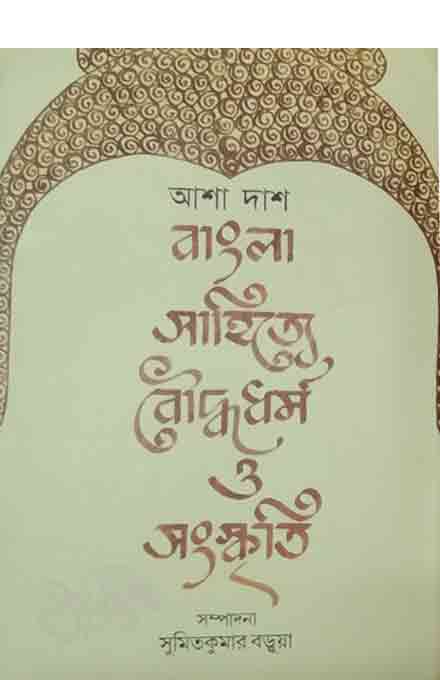 আশা দাশ
বাংলা
সাহিত্যে
বৌদ্ধধর্ম
ও
সংস্কৃতি
সম্পাদনা
সুমিতকুমার বড়ুয়া